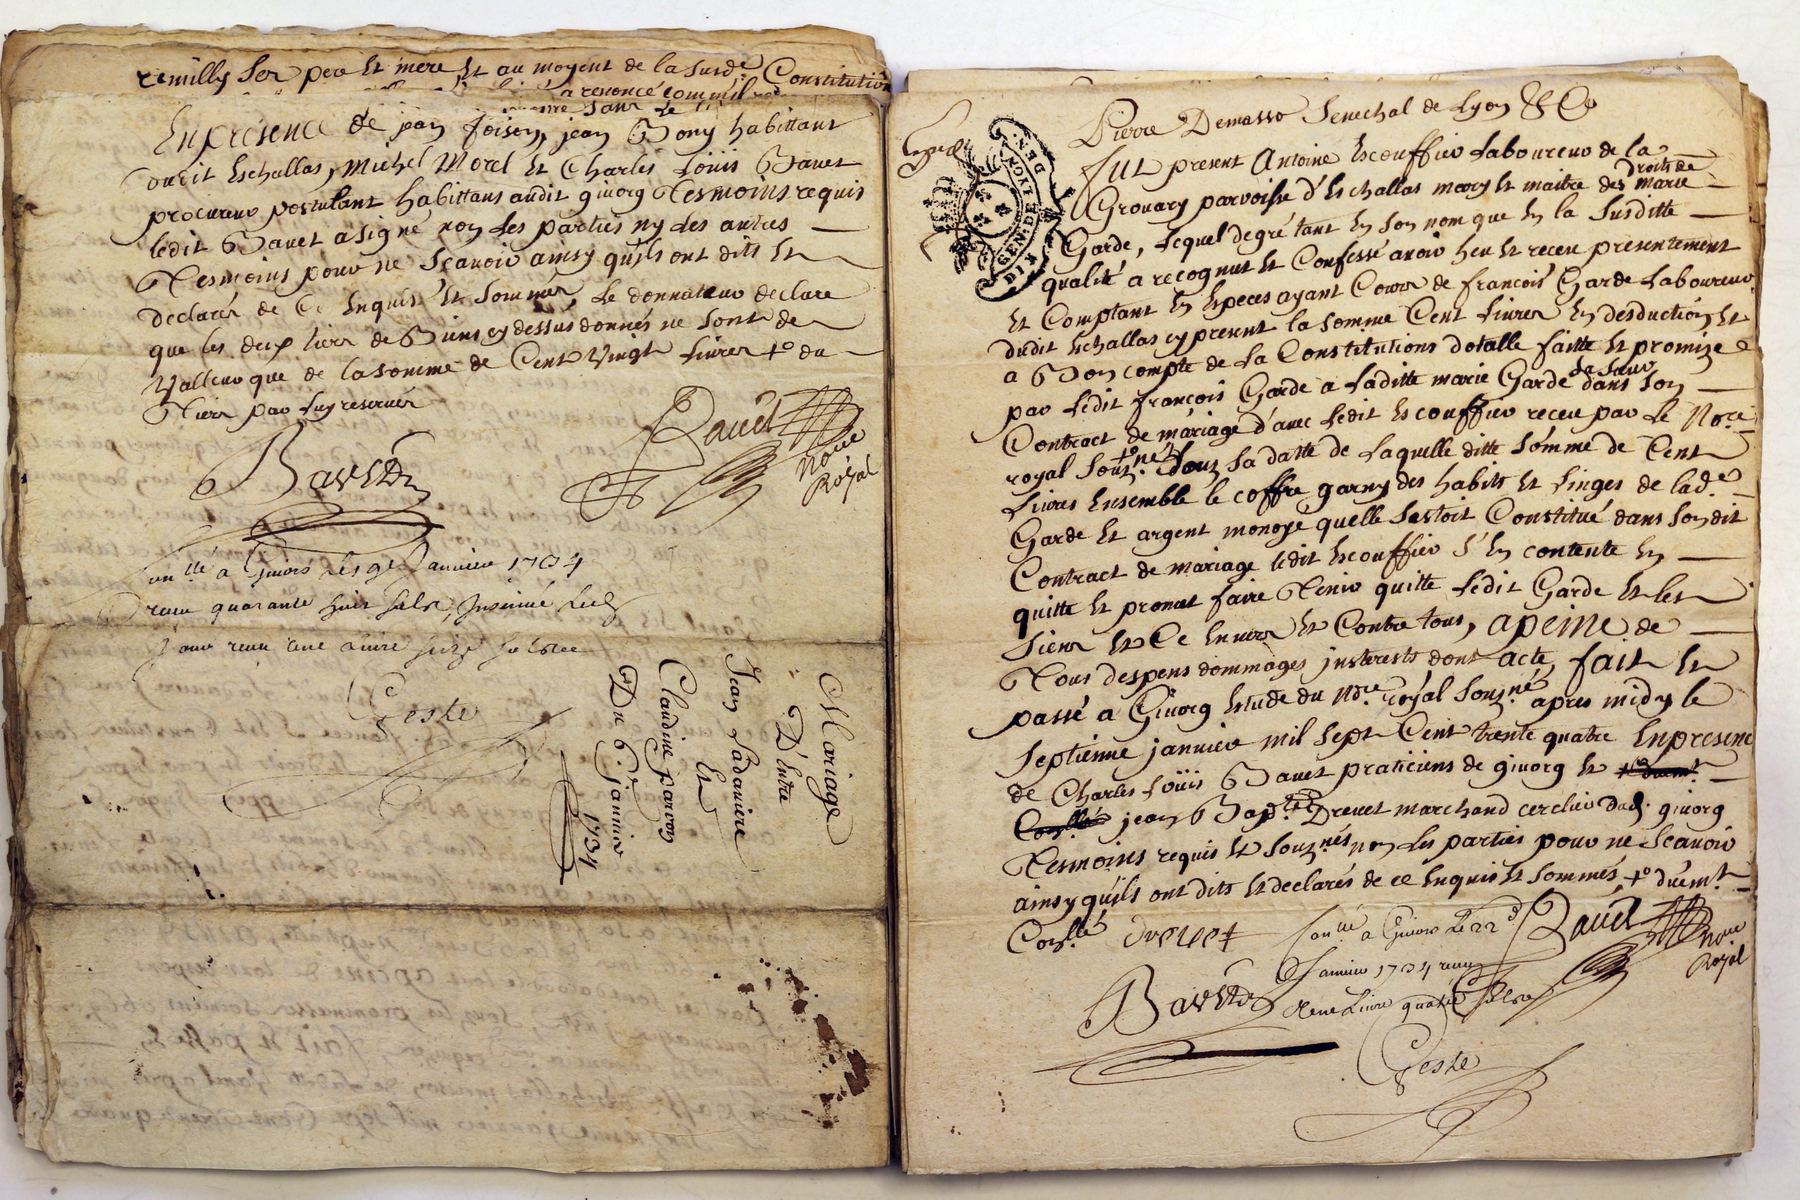 remilly Ses pere Et mere Et au moyent de la susde Constitution
a renoncé comme il
Enpresence de jean foison, jean Bony habittant
dudit Eschallas, Michel Morel Et Charles Loüis Bauet
procureur postulant habittans audit givorg Tesmoins requis
ledit Bauet a signé non les parties ny les autres
Tesmoins pour ne Scavoir ainsy quils ont dits Et
declarés de Ce Enquis Et Sommés, Le donnateur declare
que les deux tiers de Biens cy dessus donnés ne sont de
Valleur que de la somme de Cent Vingt Livres +º du
Tiers par luy reservés
Bauet
Bauet
Noire
Royal
Conllé a Givors Le 9e Janvier 1734
receu quarante huit sols, Insinué led
jour receu une livre seize sols
Geste
Mariage
D'Entre
Jean Ladaviere
Et
Claudine Parvon
Du 6e Janvier
1734
Pierre Demasso Senechal de Lyon &Ca
GEN. DE LYON
Fut present Antoine Escouffier Laboureur de la
Droits de
Grouary parroisse d'Eschallas mary Et maitre des marie
Garde, Lequel degré tant En son nom que En la Susditte
qualité a recognut Et Confessé avoir heu Et receu presentement
Et Comptant En Especes ayant Cours de françois Garde Laboureur
dudit Eschallas cy present la somme Cent Livres En desduction Et
a Bon compte de La Constitutions dotalle faitte Et promize
par Ledit françois Garde a Laditte marie Garde sa sœur dans son
Contract de mariage d'avec Ledit Escouffier receu par Le Nore
royal Sousné +º Sous sa datte de Laquelle ditte somme de Cent
Livres Ensemble le coffre garny des habits Et Linges de lade
Garde Et argent monoye quelle Sestoit Constitué dans son dit
Contract de mariage ledit Escouffier s'En contente En
quitte Et promet faire Tenir quitte Ledit Garde Et les
Siens Et Ce Envers Et Contre tous, apeine de
Tous despens dommages jnterests dont acte, fait Et
passé a Givorg Estude du Nore royal Sousné apres midy le
Septieme janvier mil sept Cent trente quatre Enpresence
de Charles Loüis Bauet praticiens de givorg Et
jean Baptte Drevet marchand cerclier dud. givorg
Tesmoins requis Et Sousnés non Les parties pour ne Scavoir
ainsy quils ont dits Et declarés de ce Enquis Et sommés, +º düemt
Conllé
drevet
Conllé a Givors Le 22e
Janvier 1734 receu
une Livre quatre sols
Bauet
Noire
Royal
Bauet
Geste